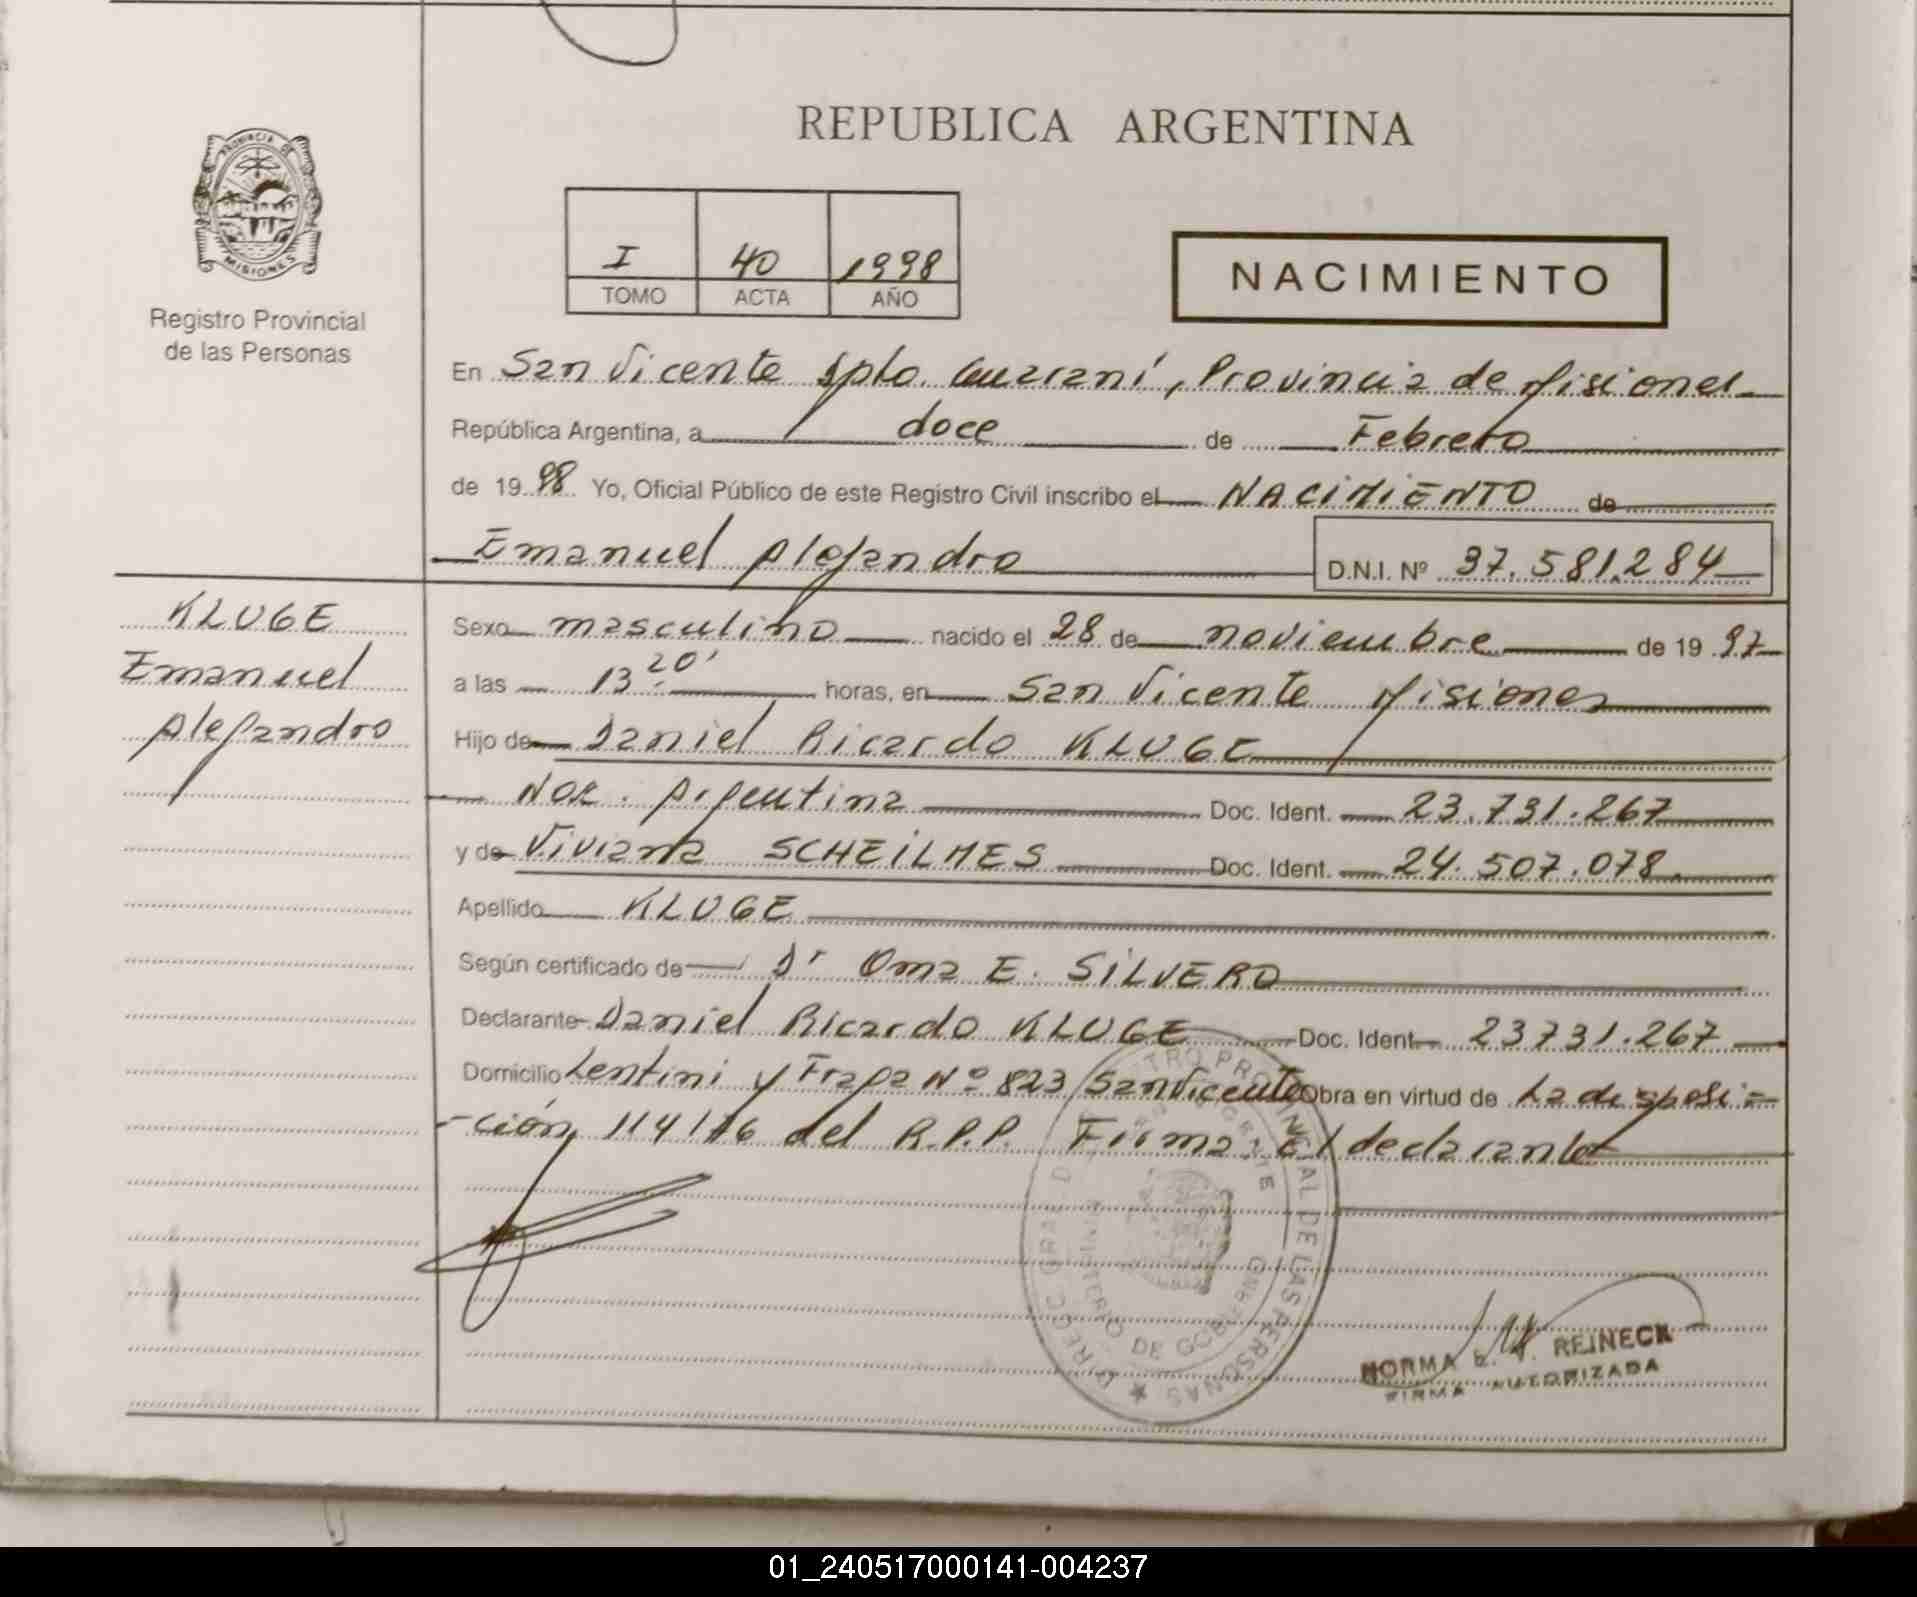 REPUBLICA ARGENTINA
PROVINCIA DE
MISIONES
Registro Provincial
de las Personas
I 40 1998
TOMO ACTA AÑO
NACIMIENTO
En San Vicente Dpto. Guaraní, Provincia de Misiones
República Argentina, a doce de Febrero
de 19 98 Yo, Oficial Público de este Registro Civil inscribo el NACIMIENTO de
Emanuel Alejandro D.N.I. Nº 37.581.284
KLUGE
Emanuel
Alejandro
Sexo masculino nacido el 28 de noviembre de 19 97
a las 13 20' horas, en San Vicente Misiones
Hijo de Daniel Ricardo KLUGE
Nac. Argentina Doc. Ident. 23.731.267
y de Viviana SCHEILMES Doc. Ident. 24.507.078.
Apellido KLUGE
Según certificado de Dr Oma E. SILVERO
Declarante Daniel Ricardo KLUGE Doc. Ident. 23731.267
Domicilio Lentini y Fraga Nº 823 San Vicente Obra en virtud de La disposi=
-ción 114/76 del R.P.P. Firma: el declarante
DE LAS PERSONAS
DE GOBIERNO
NORMA REINECK
FIRMA AUTORIZADA
01_240517000141-004237